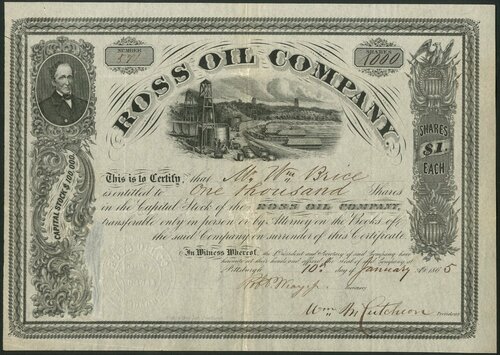 NUMBER
SHARES
1000
ROSS OIL COMPANY.
CAPITAL STOCK $100,000.
SHARES
$1.
EACH
This is to Certify, that Mr. Wm. Brice
is entitled to One thousand Shares
in the Capital Stock of the ROSS OIL COMPANY,
transferable only in person or by Attorney on the Books of
the said Company on surrender of this Certificate.
In Witness Whereof, the President and Secretary of said Company have
hereunto set their hands and affixed the Seal of the Company at
Pittsburgh 10th day of January 1865
Secretary
Wm McCutcheon President